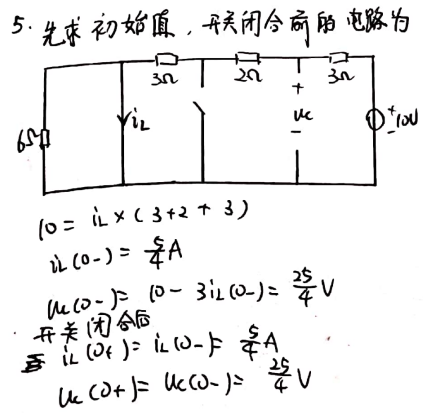 5. 先求初始值，开关闭合前的电路为
3Ω 2Ω 3Ω
6Ω iL + uc - + 10V -
10 = iL × (3+2+3)
iL(0-) = 5/4 A
uc(0-) = 10 - 3iL(0-) = 25/4 V
开关闭合后
iL(0+) = iL(0-) = 5/4 A
uc(0+) = uc(0-) = 25/4 V